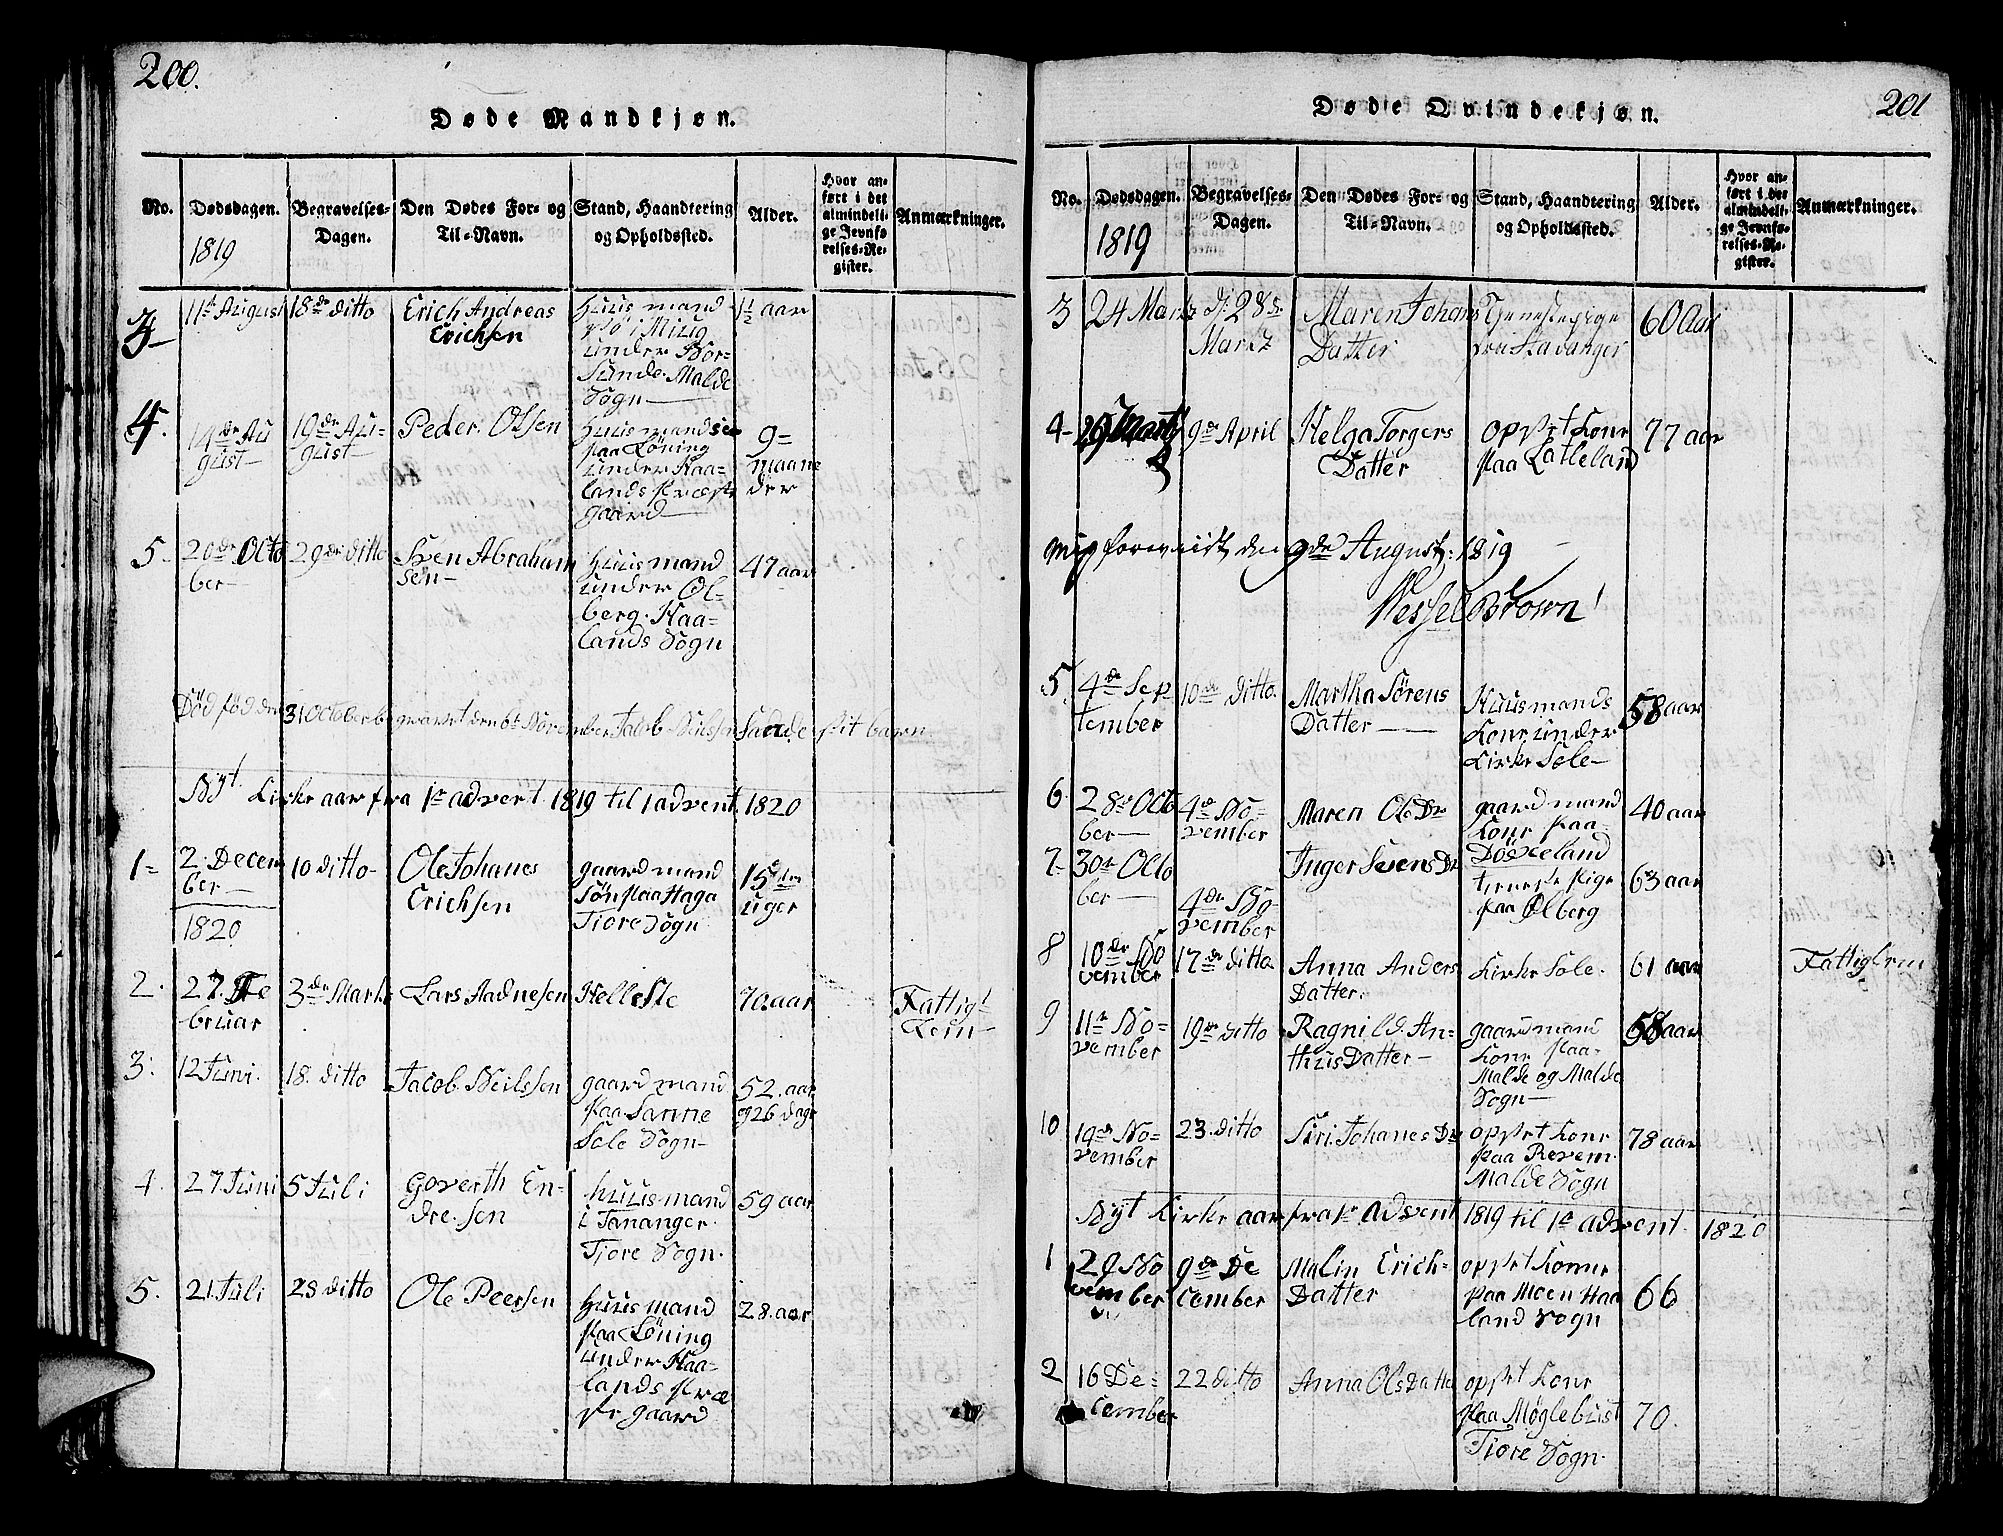 200.
Døde Mandkjøn.
No.
Dødsdagen.
1819
Begravelses-
Dagen.
Den Dødes For- og
Til-Navn.
Stand, Haandtering
og Opholdssted.
Alder.
Hvor an-
ført i det
almindeli-
ge Jevnfø-
relses-Re-
gister.
Anmærkninger.
3
11te August
18de ditto
Erich Andreas
Erichsen
Huusmand
under
Sunde Malde
Sogn
1½ aar
4.
14de Au
gust
19de Au-
gust
Peder Olsen
Huusmands
paa Löning
under Haa-
lands præste
gaard
9=
maane
der
5
20de Octo
ber
29de ditto
Sven Abraham
sen
Huusmand
under Öl-
berg. Haa-
lands Sogn
47 aar
Död föd den 31 October begravet den 6te November Jacob Neilssen Sande sit barn
Nyt Kirke aar fra 1te advent 1819 til 1 advent. 1820
1=
2. Decem
ber
1820
10 ditto
Ole Johanes
Erichsen
gaardmand
Søn paa Haga
Tiore Sogn
15
uger
2.
27. Fe
bruar
3de Marts
Lars Aadnesen
Helleste
70. aar
Fattig
Lem
3.
12 Juni.
18. ditto
Jacob Neilssen
gaardmand
paa Sanne
Sole Sogn
52. aar
og 26 dage
4.
27 Juni
5 Juli
Goverth En-
dresen
huusmand
i Tananger.
Tjore Sogn.
59 aar
5.
21. Juli
28 ditto
Ole Peersen
Huusmand
paa Löning
under Haa-
lands præ
ste gaard
28. aar
201
Døde Qvindekjøn.
No.
Dødsdagen.
1819
Begravelses-
Dagen.
Den Dødes For- og
Til-Navn.
Stand, Haandtering
og Opholdssted.
Alder.
Hvor an-
ført i det
almindeli-
ge Jevnfø-
relses-Re-
gister.
Anmærkninger.
3
24 Martz
d. 28de
Martz
Maren Johans
Datter
Tjenestepige
fra Stavanger
60 Aar
4
29 Martz
9de April
Helga Torgers
Datter
opsit Kone
paa Latleland
77 aar
den 9de August: 1819
Wessel Brown!
5
4de Sep
tember
10de ditto.
Martha Sörens
Datter
Huusmands
Kone under
Kirke Sole
58 aar
6
28de Octo
ber
4de No-
vember
Maren Ols Dr
gaardmand
Kone paa
40 aar
7
30te Octo
ber
4de No
vember
Inger Svens Dr
tieneste pige
paa Ölberg
63 aar
8
10de No
vember
17de ditto
Anna Anders
Datter.
Kirke Sole.
61 aar
Fattiglem
9
11te No-
vember
19de ditto
Ragnild. An-
thus Datter
gaardmand
Kone paa
Malde og Malde
Sogn
58 aar
10
19de No=
vember
23. ditto
Siri Johanes Dr
opsit Kone
paa Revem
Malde Sogn
78 aar
Nyt Kirke aar fra 1te advent 1819 til 1te advent. 1820
1
29 No
vember
9de De
cember
Malin Erich-
Datter
opsit Kone
paa Moen Haa
land Sogn
66
2
16 De-
cember
22 ditto
Anna Ols Datte
opsit Kone
paa Møglebust
Tiore Sogn.
70.